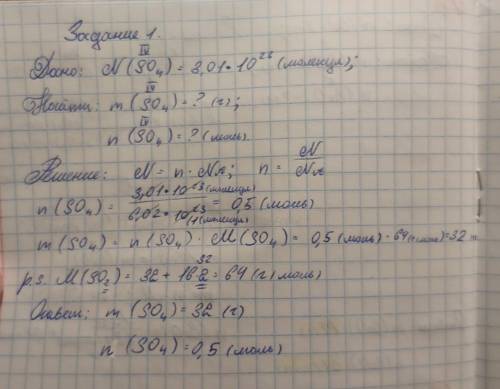 Задание 1.
IV
Дано: N(SO₄) = 3,01 · 10²³ (молекул);
IV
Найти: m (SO₄) = ? (г);
IV
n (SO₄) = ? (моль).
Решение: N = n · Nₐ; n = N / Nₐ
n (SO₄) = 3,01 · 10²³ (молекул) / 6,02 · 10²³ (молекул) = 0,5 (моль)
m (SO₄) = n (SO₄) · M (SO₄) = 0,5 (моль) · 64 (г/моль) = 32 г.
32
p.s. M (SO₂) = 32 + 16·2 = 64 (г/моль)
Ответ: m (SO₄) = 32 (г)
n (SO₄) = 0,5 (моль)